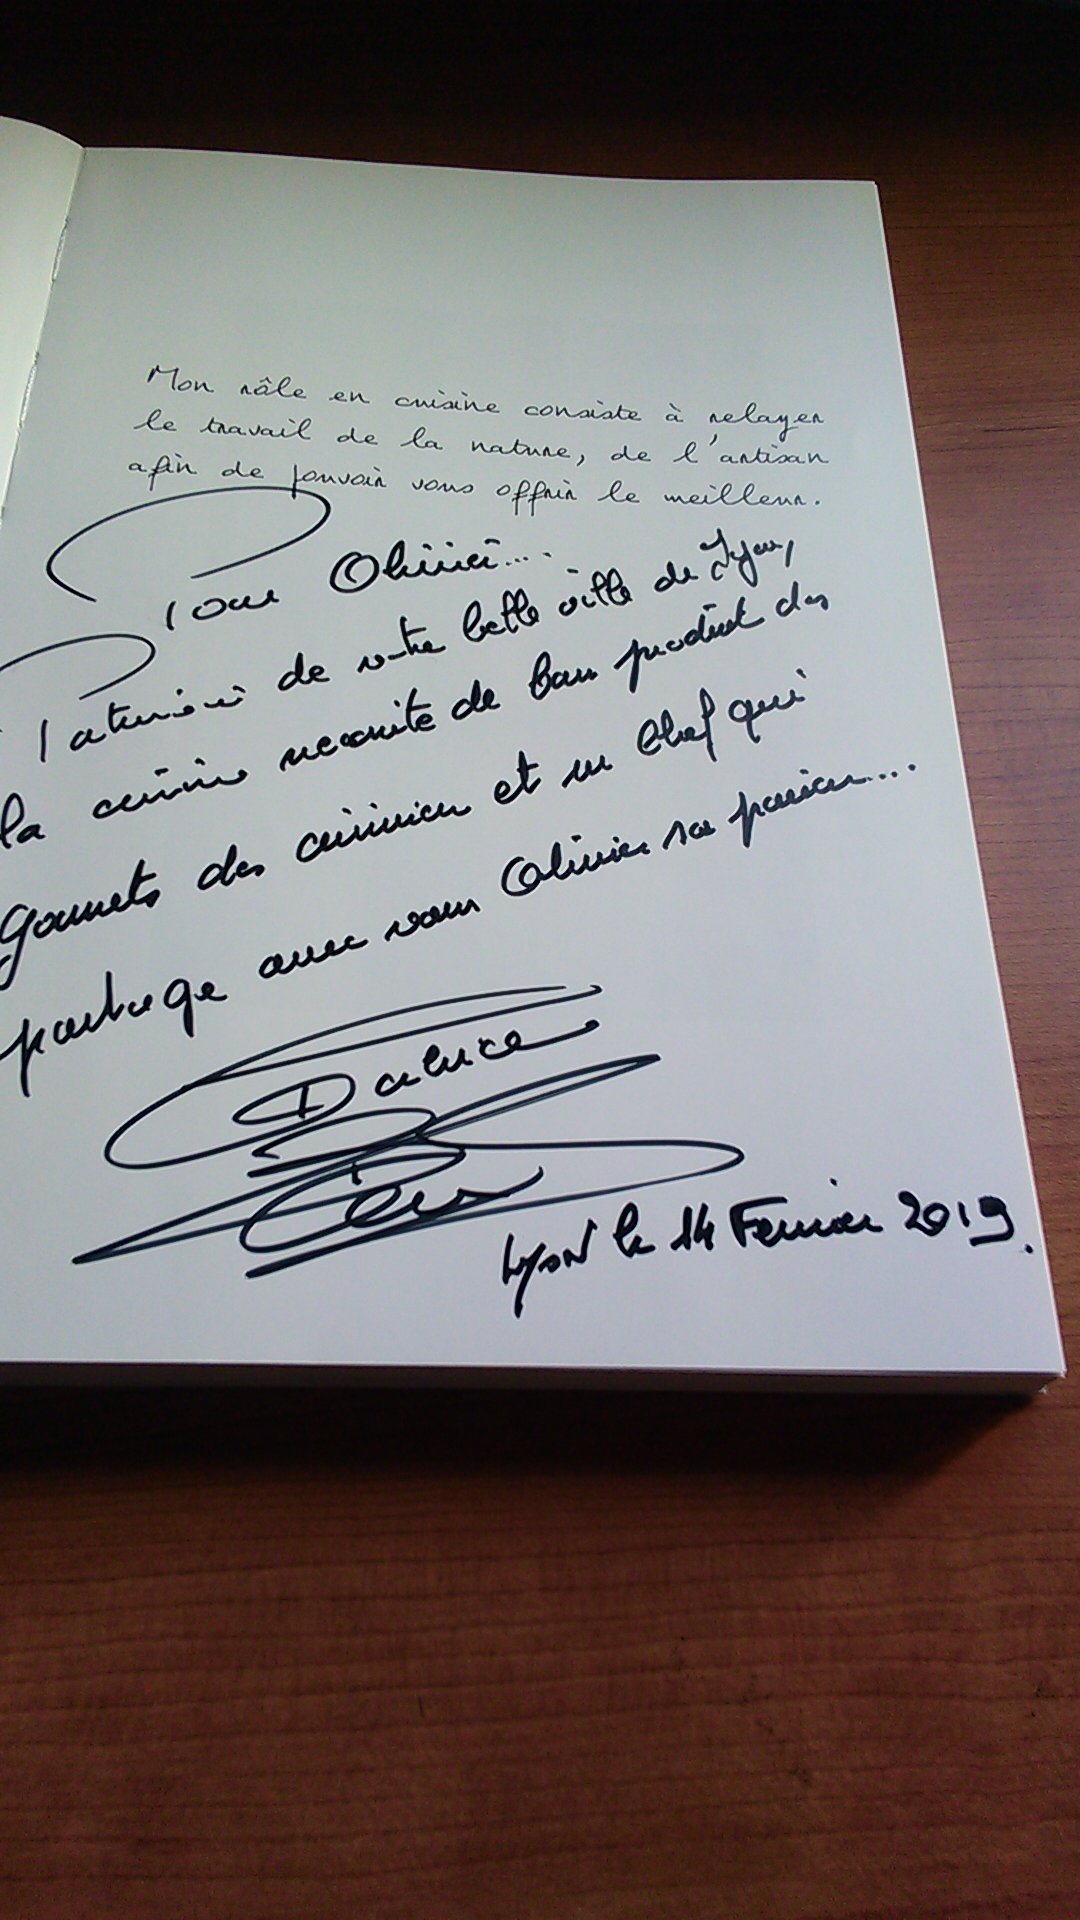 Mon rôle en cuisine consiste à relayer
le travail de la nature, de l'artisan
afin de pouvoir vous offrir le meilleur.
Pour Olivier...
de votre belle ville de Lyon,
la cuisine necessite de bons produits des
Gourmets des cuisiniers et un Chef qui
partage avec vous Olivier sa passion...
Lyon le 14 Fevrier 2019.